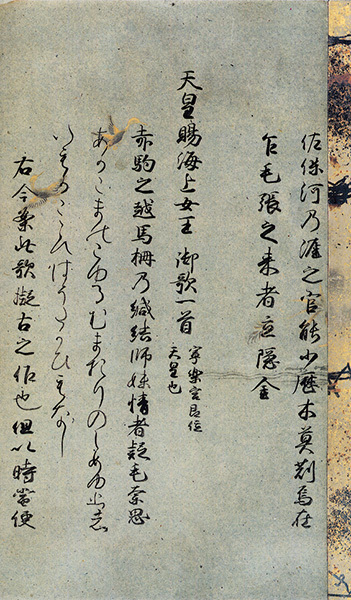 佐保河乃涯之官能少歴木莫刈焉在
乍毛張之来者立隠金
天皇賜海上女王 御歌一首
寧樂宮即位
天皇也
赤駒之越馬柵乃緘結師妹情者疑毛奈思
あかこまのこゆるむまをりのしめゆひし
いもかこゝろはうたかひもなし
右今案此歌擬古之作也但以時當便